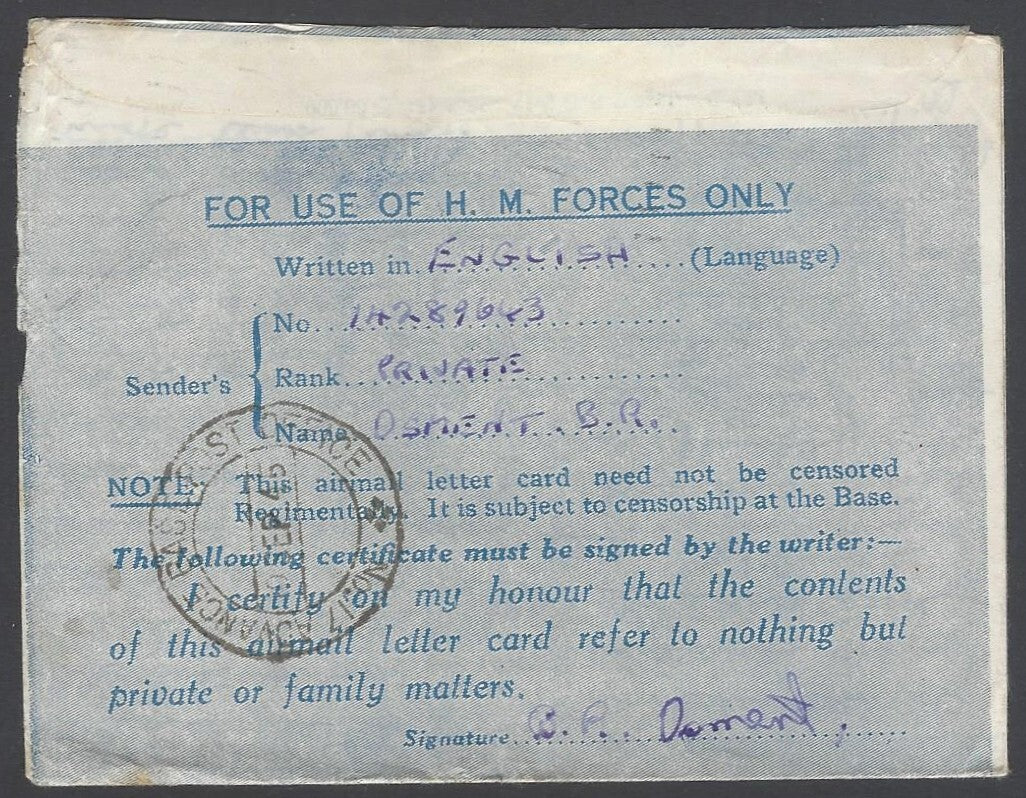 FOR USE OF H. M. FORCES ONLY
Written in ENGLISH (Language)
No. 14289643
Sender's
Rank PRIVATE
Name OSMENT. B.R.
NOTE: This airmail letter card need not be censored
Regimentally. It is subject to censorship at the Base.
The following certificate must be signed by the writer:—
I certify on my honour that the contents
of this airmail letter card refer to nothing but
private or family matters.
Signature B. R. Osment.
POST OFFICE
ADVANCE BASE